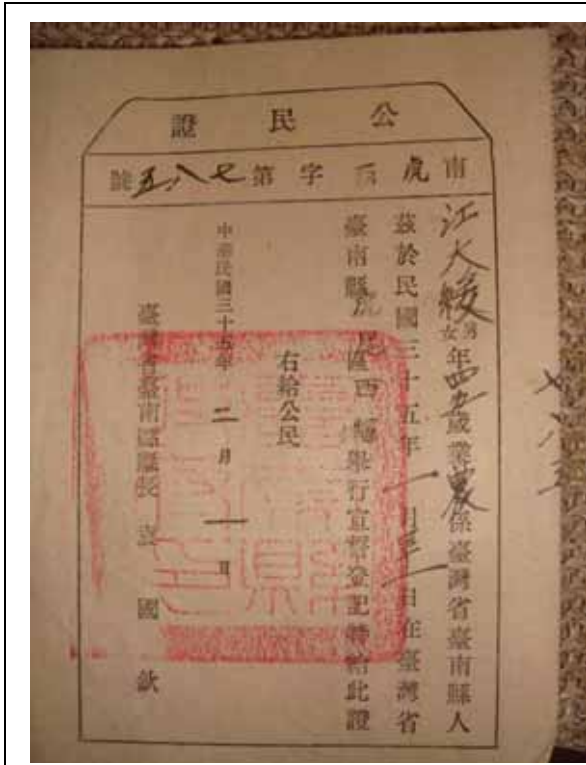 公民證
南虎 字第七八五號
江大綾 男女年四五歲業農係臺灣省臺南縣人
茲於民國三十五年一月 一日在臺灣省
臺南縣虎尾區西 舉行宣誓登記特給此證
右給公民
中華民國三十五年二月一日
臺灣省臺南縣縣長袁國欽
七八五